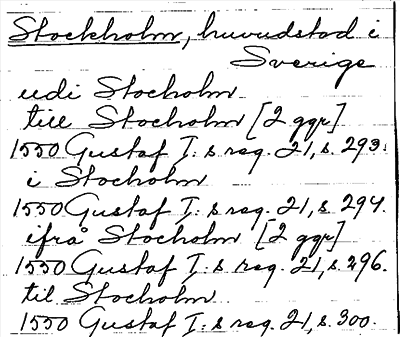 Stockholm, huvudstad i
Sverige
udi Stocholm
till Stocholm [2 ggr]
1550 Gustaf I:s reg. 21, s. 293.
i Stocholm
1550 Gustaf I:s reg. 21, s. 294.
ifrå Stocholm [2 ggr]
1550 Gustaf I:s reg. 21, s. 296.
til Stocholm
1550 Gustaf I:s reg. 21, s. 300.